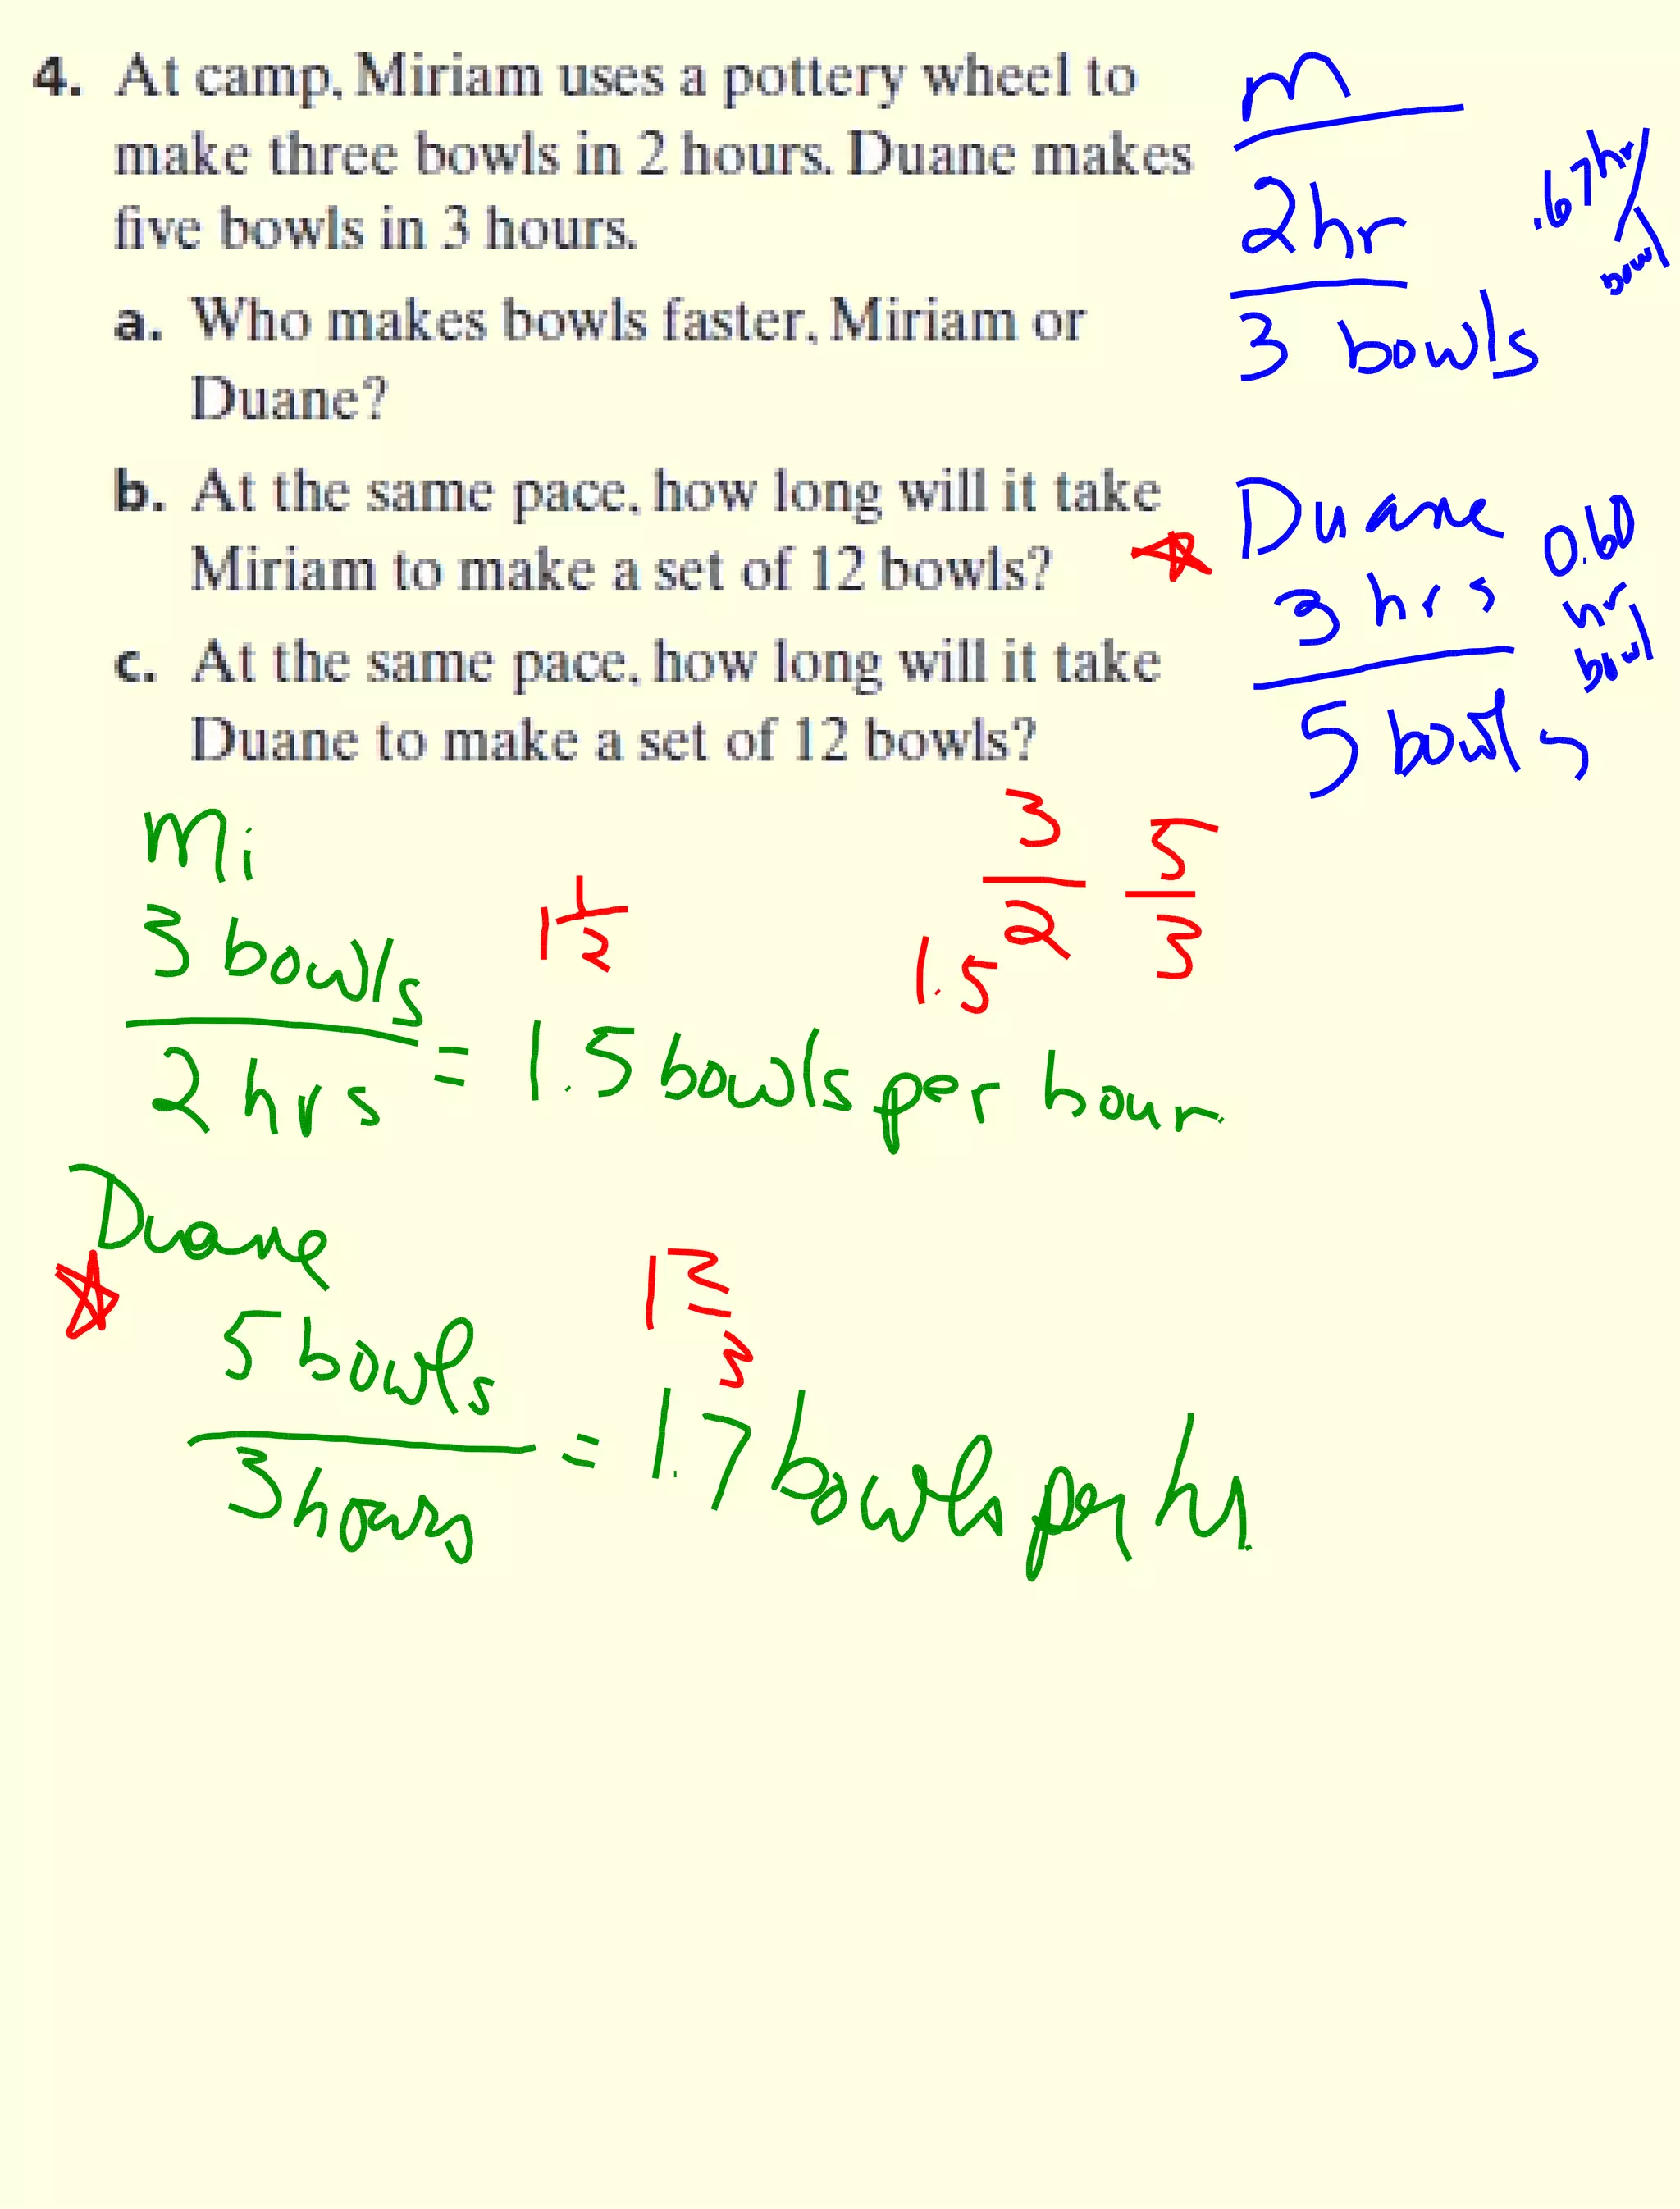 4. At camp, Miriam uses a pottery wheel to
make three bowls in 2 hours. Duane makes
five bowls in 3 hours.
a. Who makes bowls faster, Miriam or
Duane?
b. At the same pace, how long will it take
Miriam to make a set of 12 bowls?
c. At the same pace, how long will it take
Duane to make a set of 12 bowls?
m
2hr
3 bowls
.67 hr/
bowl
Duane
3 hrs
5 bowls
0.60
hr
bowl
3
2
5
3
1.5
Mi
3 bowls
2 hrs
= 1.5 bowls per hour.
1 1/2
Duane
5 bowls
3 hours
= 1.7 bowls per hr.
1 2/3